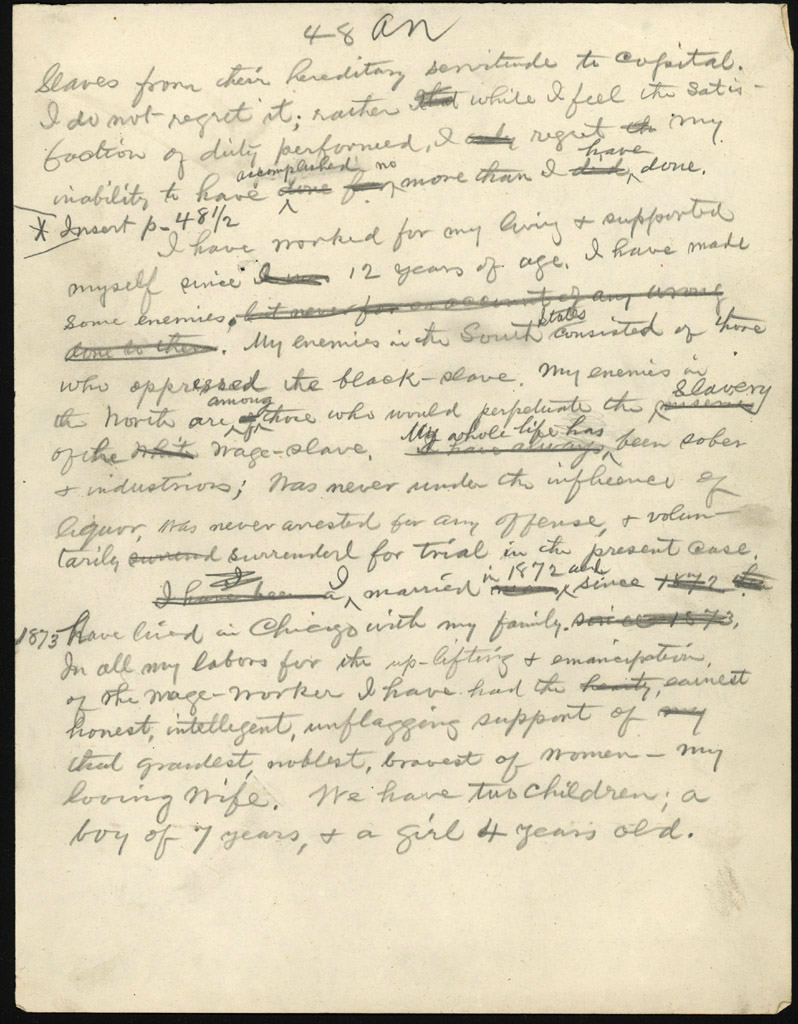 48 AN
Slaves from their hereditary servitude to capital.
I do not regret it; rather that while I feel the satis-
faction of duty performed, I only regret the my
inability to have done accomplished for no more than I did have done.
* Insert p-48½
I have worked for my living & supported
myself since I was 12 years of age. I have made
some enemies, but never for on account of any wrong
done to them. My enemies in the South states consisted of those
who oppressed the black-slave. My enemies in
the North are of among those who would perpetuate the Slavery
of the white wage-slave. I have always My whole life has been sober
& industrious; Was never under the influence of
liquor, was never arrested for any offense, & volun-
tarily surrend surrenderd for trial in the present case.
I have been a I married in 1872 and since 1872
1873 have lived in Chicago with my family. since 1873.
In all my labors for the up-lifting & emancipation,
of the wage-worker I have had the hearty, earnest
honest, intelligent, unflagging support of my
that grandest, noblest, bravest of women - my
loving Wife. We have two children; a
boy of 7 years, & a girl 4 years old.